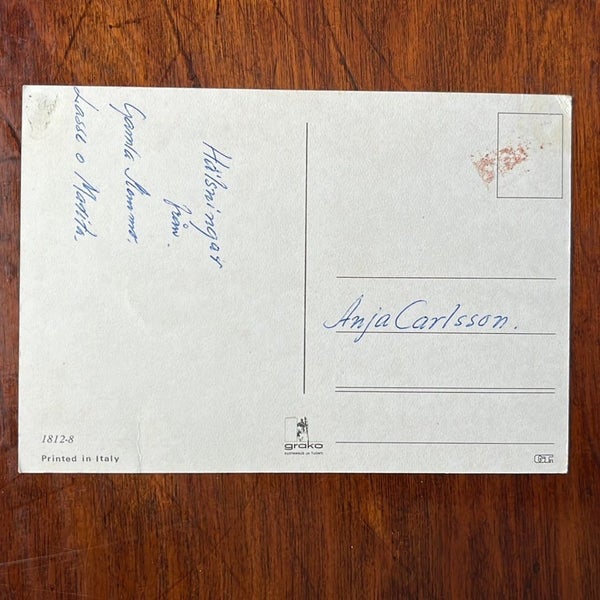 Hälsningar
från.
Gamla Mommo.
Lasse o Matita.
Anja Carlsson.
1812-8
Printed in Italy
grako